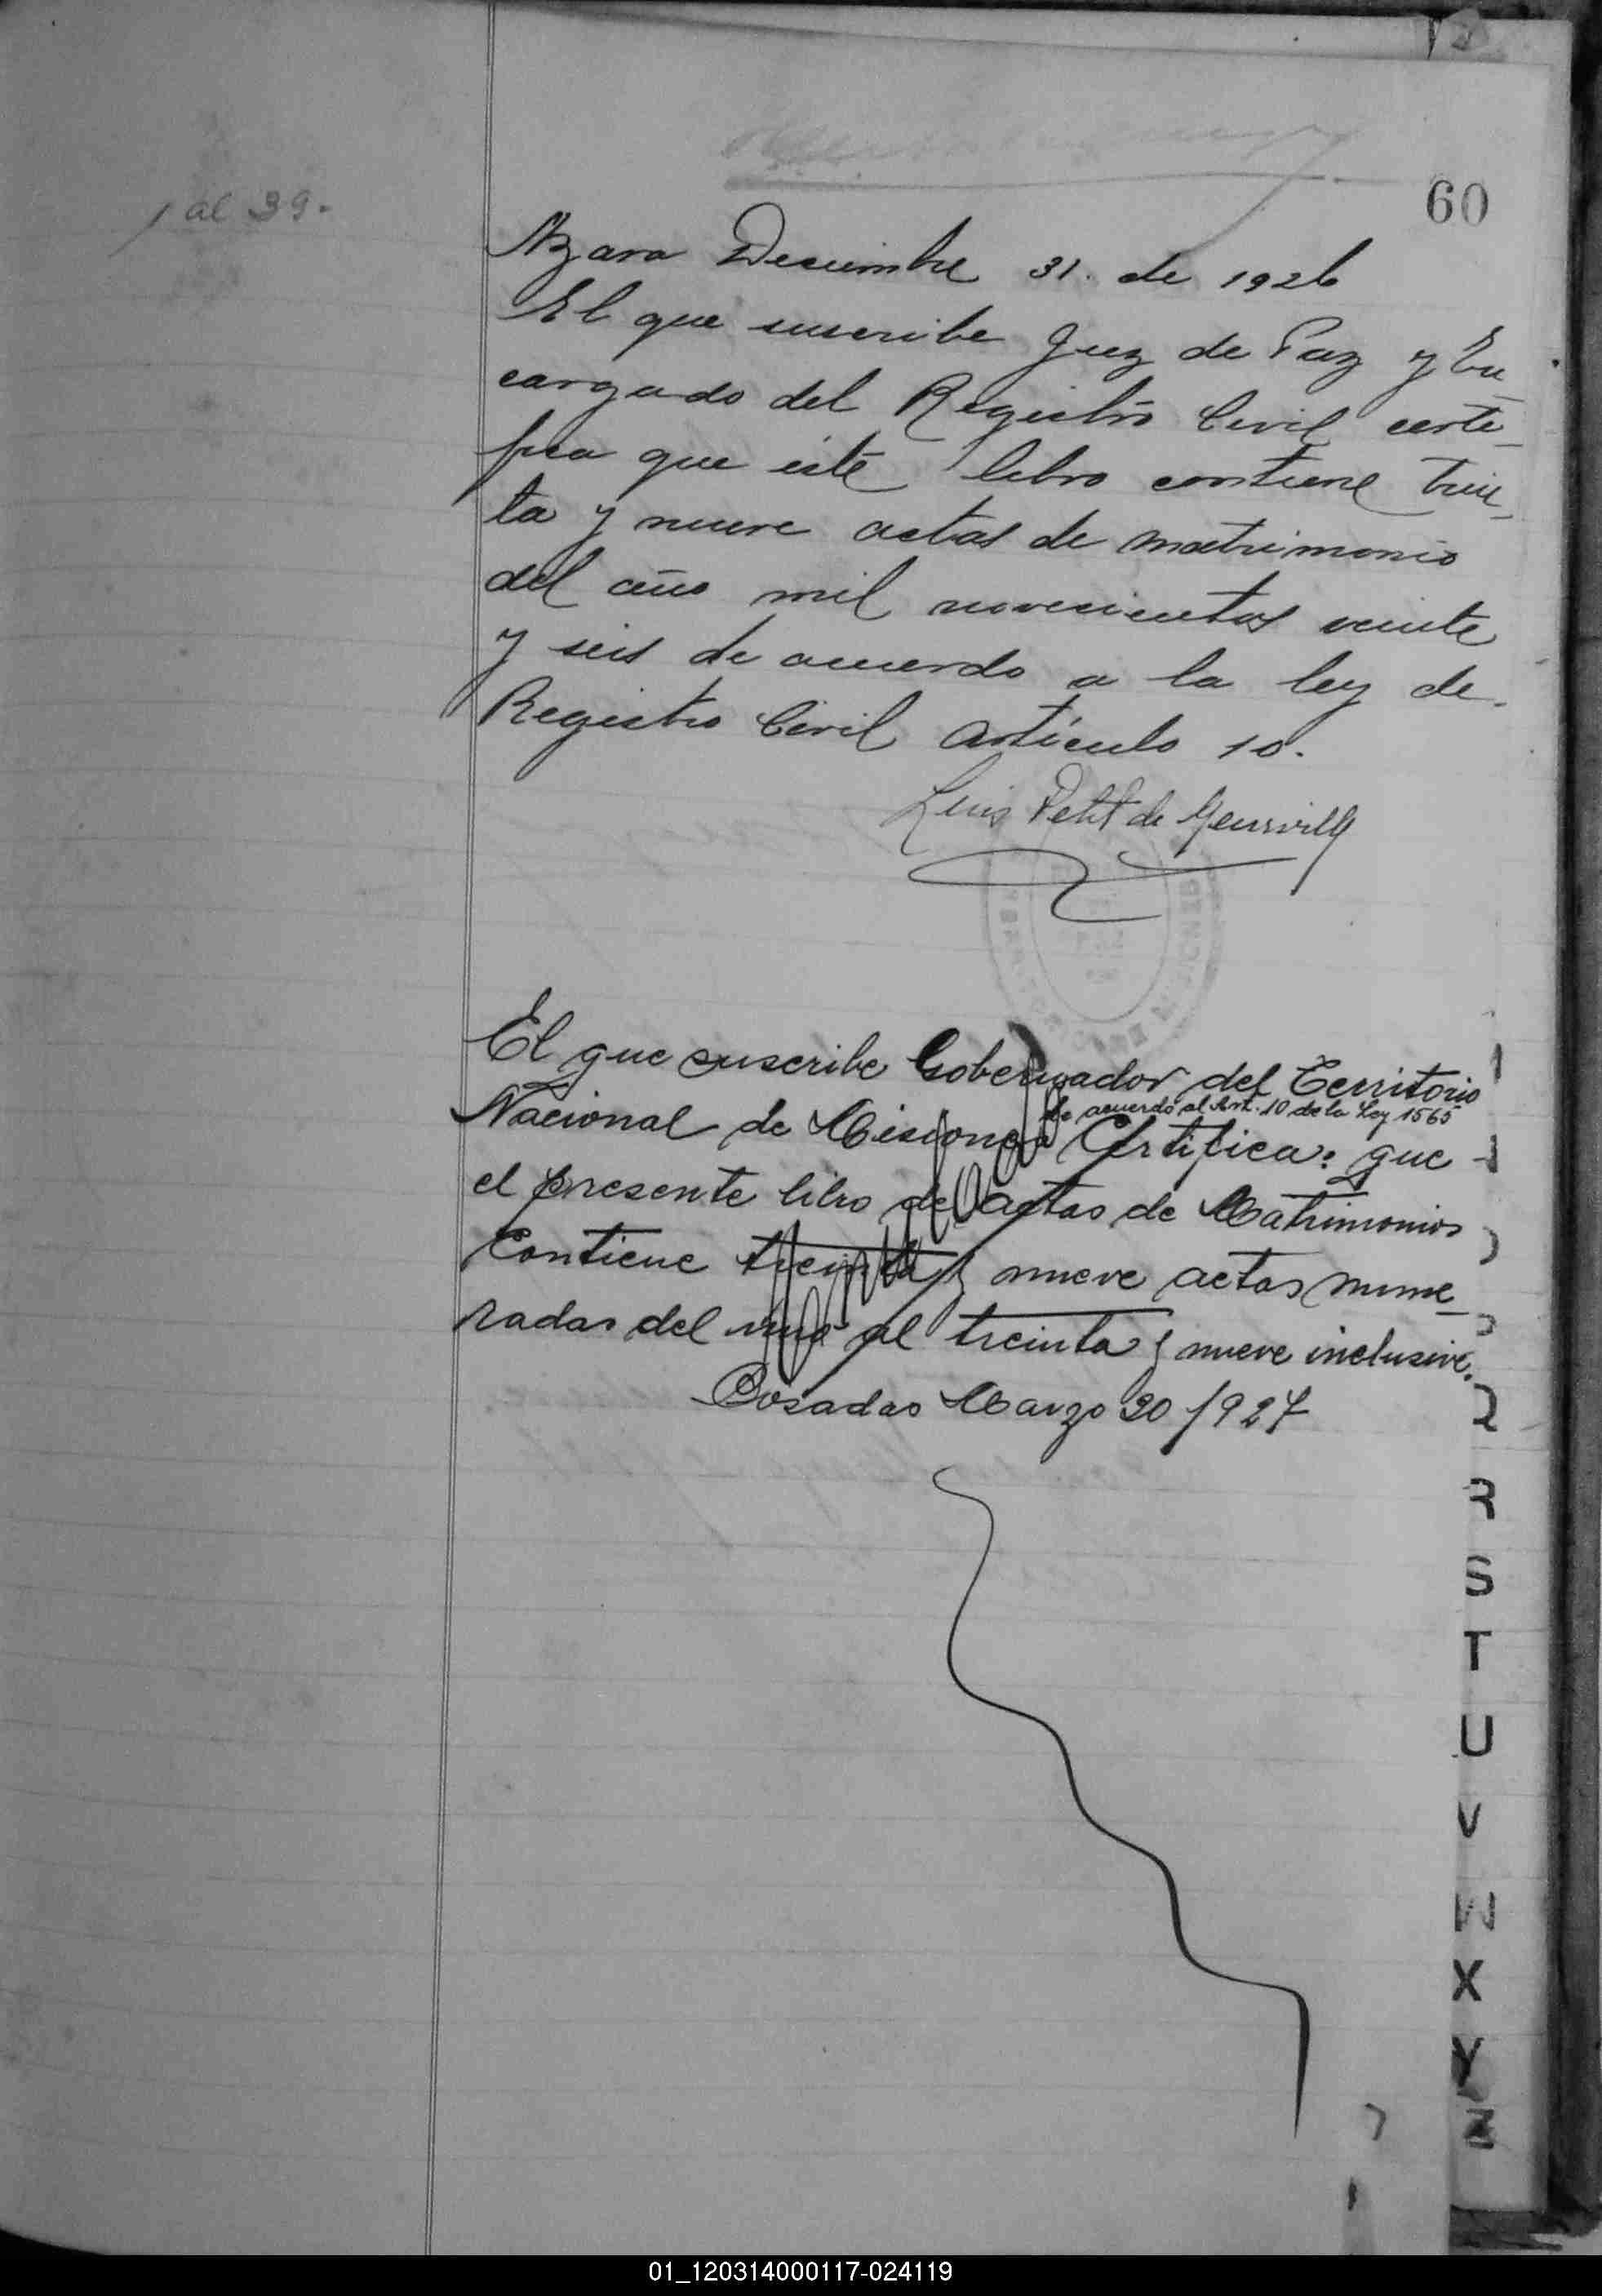 60
1 al 39.-
Azara Diciembre 31. de 1926
El que suscribe Juez de Paz y En-
cargado del Registro Civil certi-
fica que este libro contiene trein-
ta y nueve actas de matrimonio
del año mil novecientos veinte
y seis de acuerdo a la ley de
Registro Civil artículo 10.
Luis Petit de
El que suscribe Gobernador del Territorio
de acuerdo al Art. 10 de la Ley 1565
Nacional de Misiones Certifica: que
el presente libro de actas de Matrimonios
contiene treinta y nueve actas nume-
radas del uno al treinta y nueve inclusive.
Posadas Marzo 20/927
R
S
T
U
V
W
X
Y
Z
01_120314000117-024119